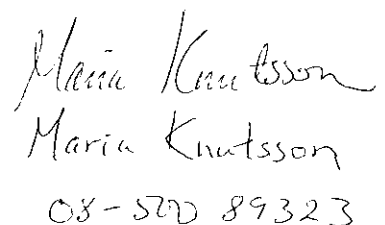 Maria Knutsson
Maria Knutsson
08-500 89323